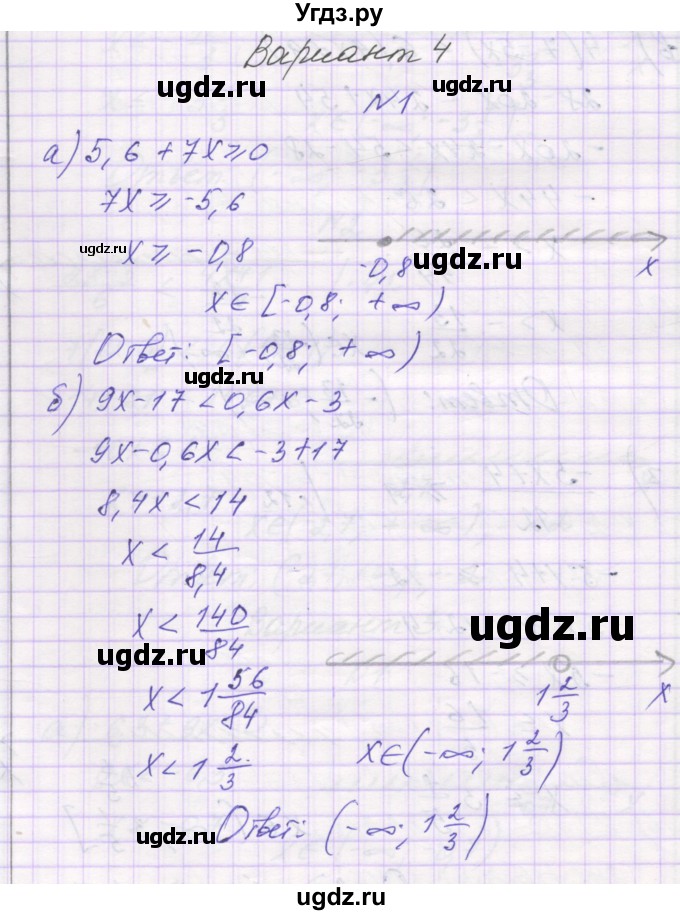 Угдз.ру
Вариант 4
ugdz.ru ugdz.ru
N1
а) 5,6 + 7x ≥ 0
7x ≥ -5,6
ugdz.ru x ≥ -0,8 ugdz.ru
-0,8 x
x ∈ [-0,8; +∞)
Ответ: [-0,8; +∞)
ugdz.ru
б) 9x - 17 < 0,6x - 3
9x - 0,6x < -3 + 17
8,4x < 14
x < 14/8,4
x < 140/84 ugdz.ru
ugdz.ru
x < 1 56/84 1 2/3 x
x < 1 2/3 x ∈ (-∞; 1 2/3)
ugdz.ru Ответ: (-∞; 1 2/3)
ugdz.ru ugdz.ru
Угдз.ру